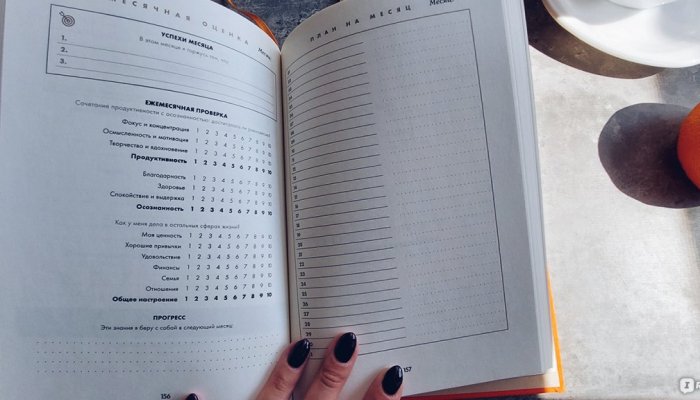 МЕСЯЧНАЯ ОЦЕНКА
Месяц:
УСПЕХИ МЕСЯЦА
В этом месяце я горжусь тем, что:
1.
2.
3.
ЕЖЕМЕСЯЧНАЯ ПРОВЕРКА
Сочетания продуктивности с осознанностью: достигалось ли равновесие?
Фокус и концентрация 1 2 3 4 5 6 7 8 9 10
Осмысленность и мотивация 1 2 3 4 5 6 7 8 9 10
Творчество и вдохновение 1 2 3 4 5 6 7 8 9 10
Продуктивность 1 2 3 4 5 6 7 8 9 10
Благодарность 1 2 3 4 5 6 7 8 9 10
Здоровье 1 2 3 4 5 6 7 8 9 10
Спокойствие и выдержка 1 2 3 4 5 6 7 8 9 10
Осознанность 1 2 3 4 5 6 7 8 9 10
Как у меня дела в остальных сферах жизни?
Моя ценность 1 2 3 4 5 6 7 8 9 10
Хорошие привычки 1 2 3 4 5 6 7 8 9 10
Удовольствие 1 2 3 4 5 6 7 8 9 10
Финансы 1 2 3 4 5 6 7 8 9 10
Семья 1 2 3 4 5 6 7 8 9 10
Отношения 1 2 3 4 5 6 7 8 9 10
Общее настроение 1 2 3 4 5 6 7 8 9 10
ПРОГРЕСС
Эти знания я беру с собой в следующий месяц:
156
ПЛАН НА МЕСЯЦ
Месяц:
16
17
18
19
20
21
22
23
24
25
26
27
28
29
157